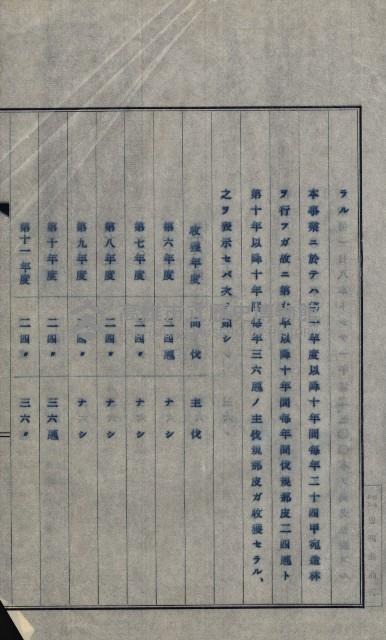 ラル
本事業ニ於テハ第一年度以降十年間毎年二十四甲宛造林
ヲ行フガ故ニ第六年以降十年間毎年間伐規那皮二四瓲ト
第十年以降十年間毎年三六瓲ノ主伐規那皮ガ收穫セラル、
之ヲ表示セバ次ノ如シ
收穫年度 間伐 主伐
第六年度 二四瓲 ナシ
第七年度 二四〃 ナシ
第八年度 二四〃 ナシ
第九年度 二四〃 ナシ
第十年度 二四〃 三六瓲
第十一年度 二四〃 三六〃